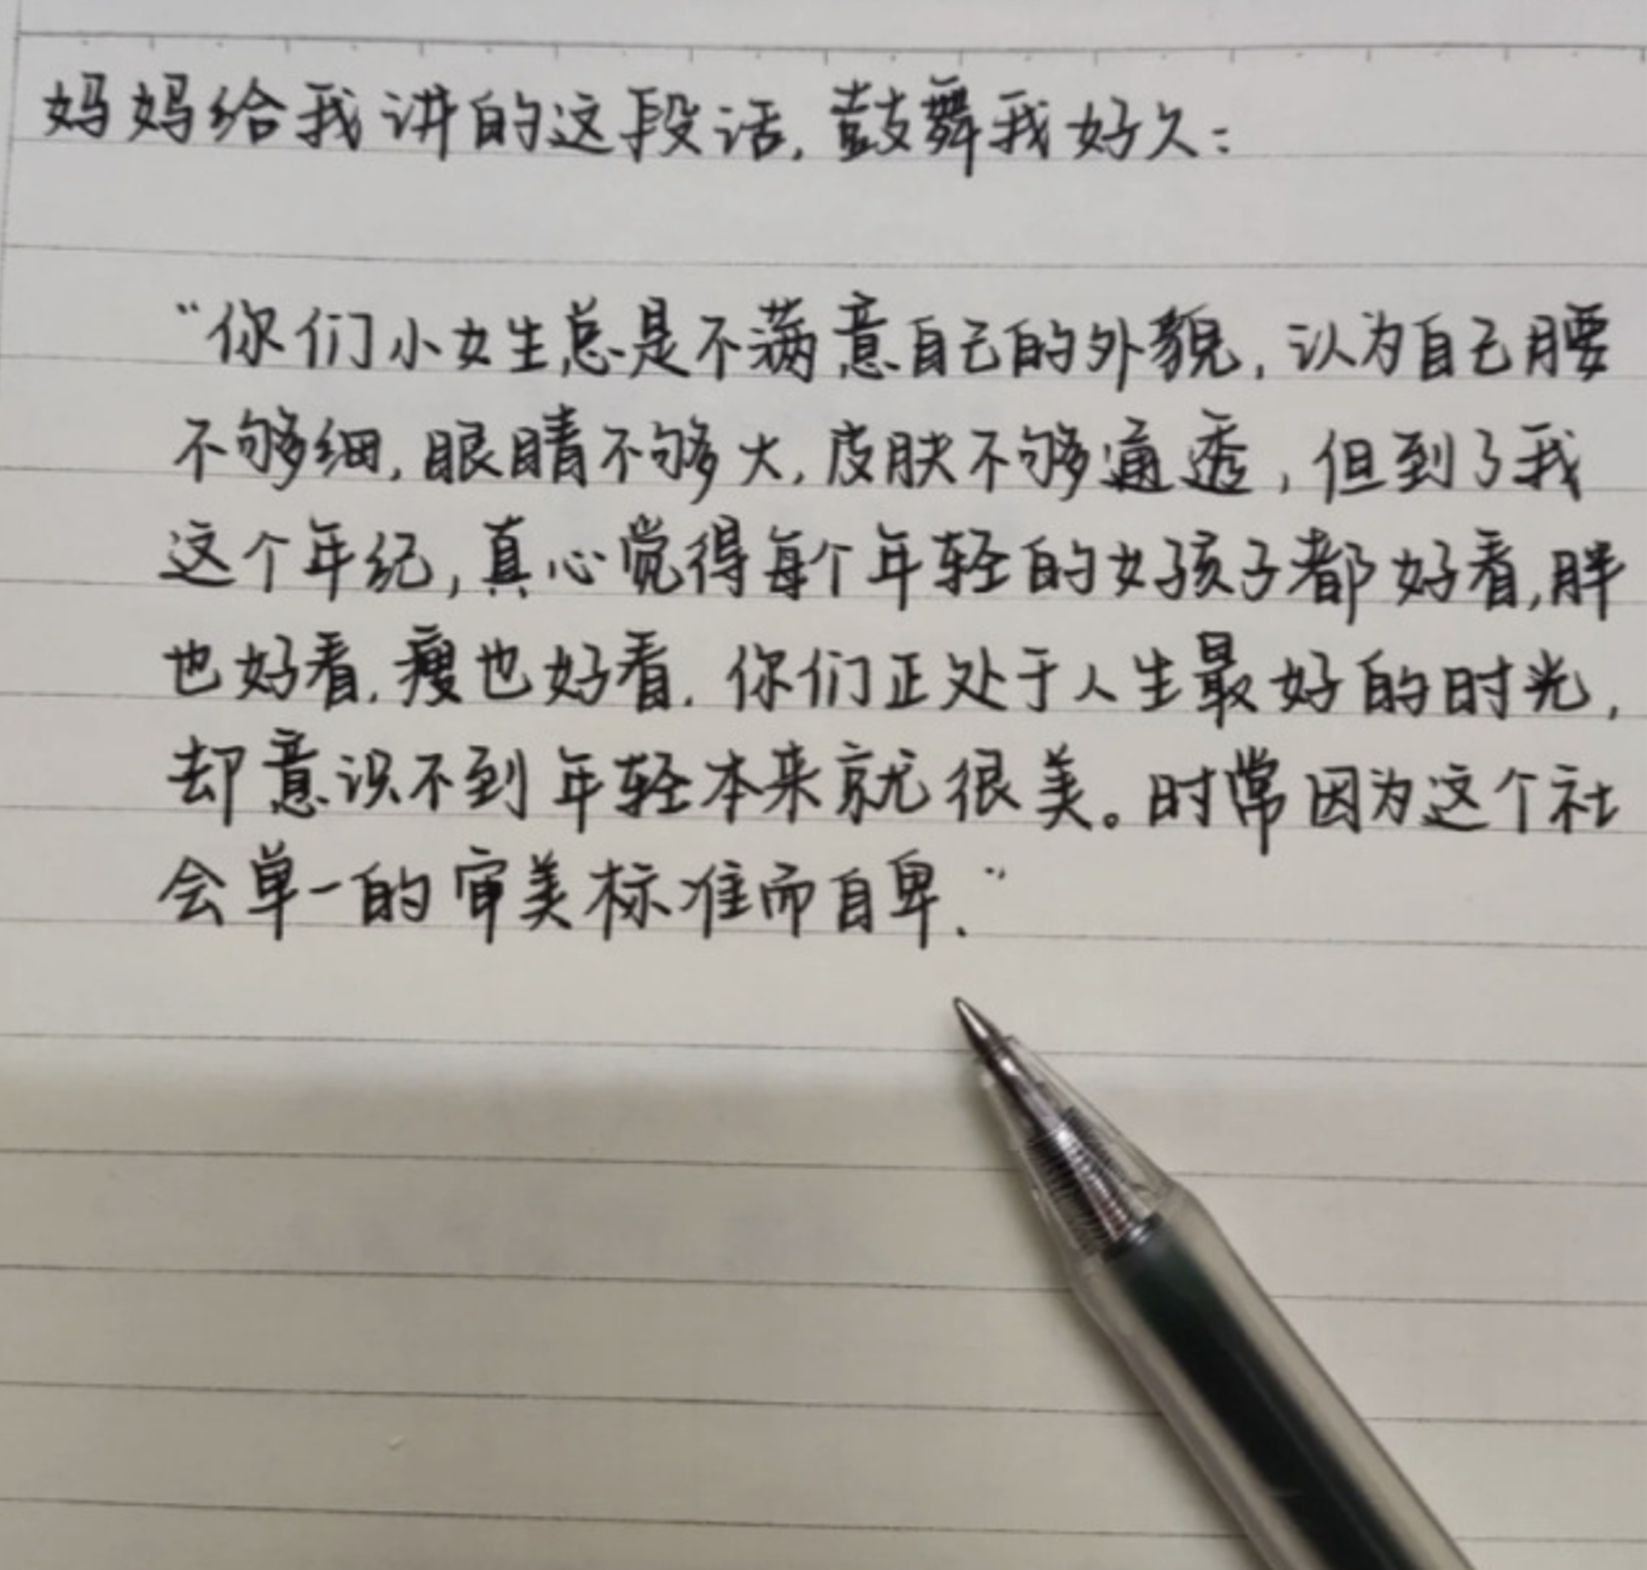 妈妈给我讲的这段话,鼓舞我好久:
“你们小女生总是不满意自己的外貌,认为自己腰
不够细,眼睛不够大,皮肤不够通透,但到了我
这个年纪,真心觉得每个年轻的女孩子都好看,胖
也好看,瘦也好看.你们正处于人生最好的时光,
却意识不到年轻本来就很美。时常因为这个社
会单一的审美标准而自卑.”